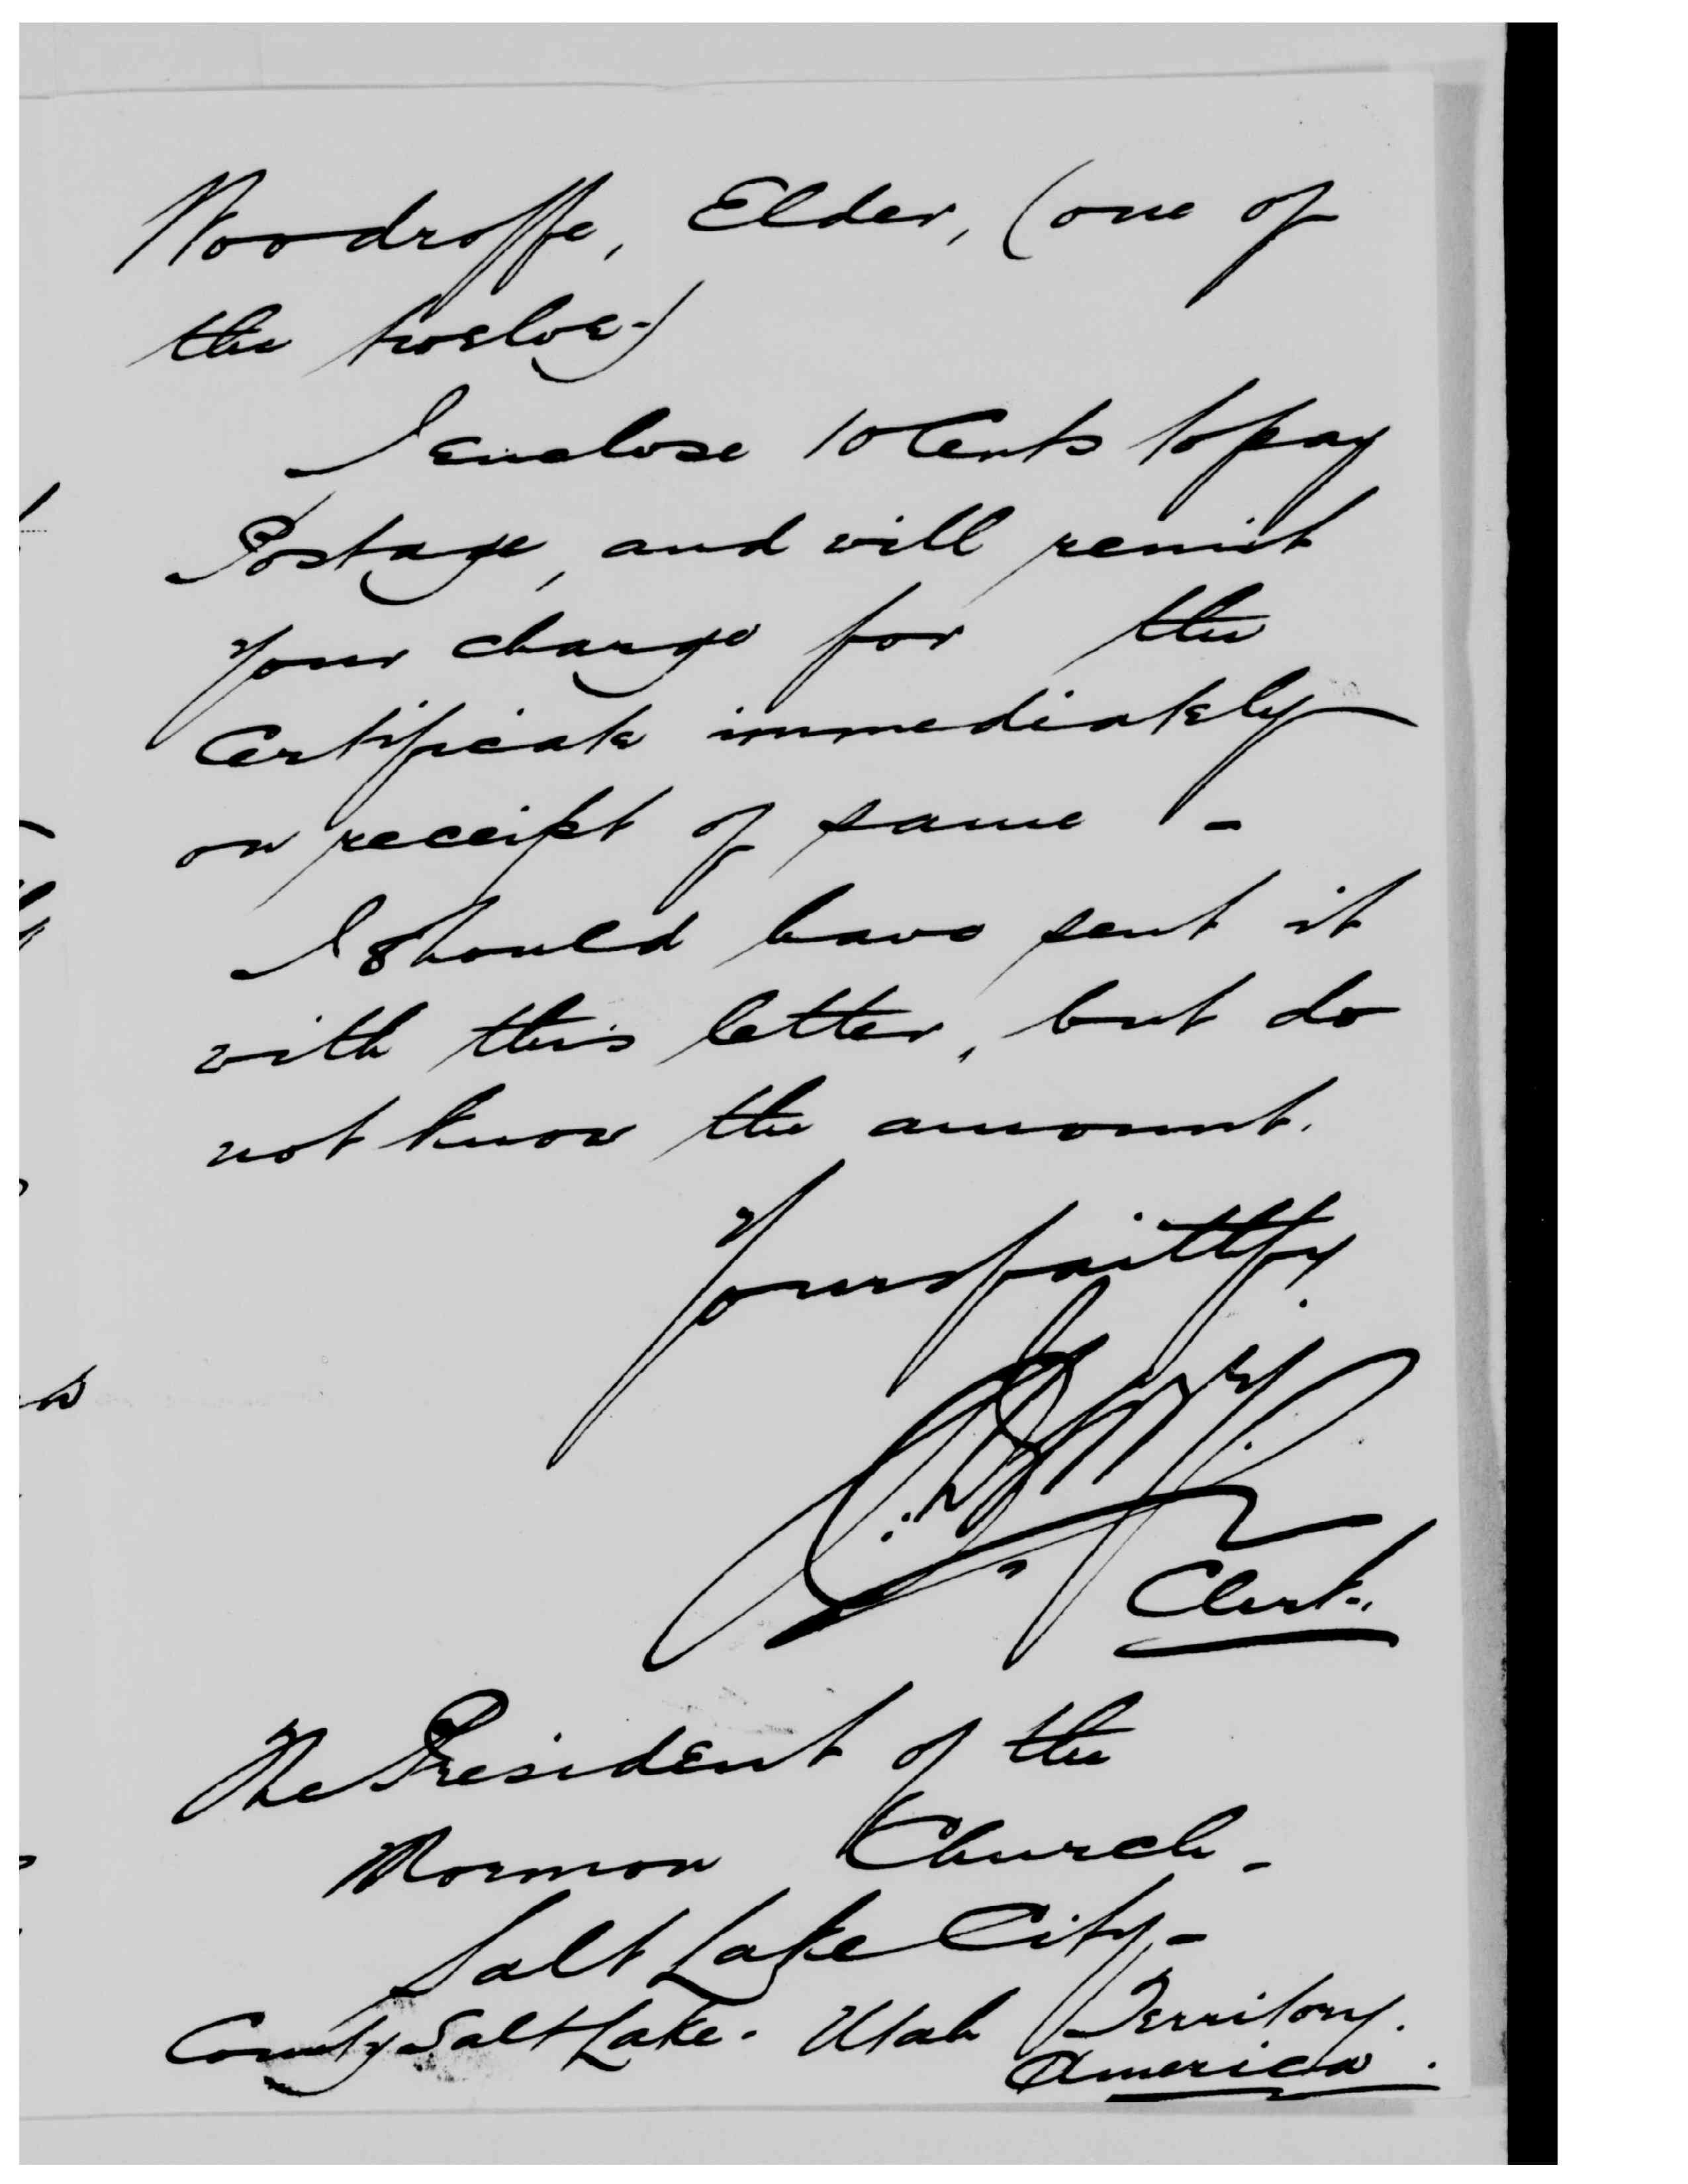 Woodroffe, Elder, (one of
the twelve-)
I enclose 10 Cents to pay
Postage, and will remit
Your charge for the
Certificate immediately
on receipt of same -
I should have sent it
with this letter, but do
not know the amount.
Yours faithfy
Clerk.
The President of the
Mormon Church.
Salt Lake City-
County Salt Lake. Utah Territory.
America.